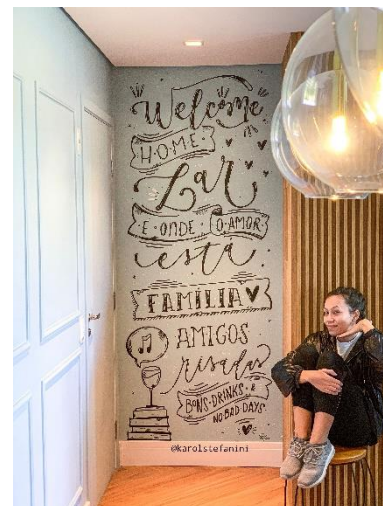 Welcome
HOME
Lar
E • ONDE • O • AMOR
está
FAMÍLIA
AMIGOS
risadas
BONS • DRINKS • &
NO BAD DAYS
@karolstefanini